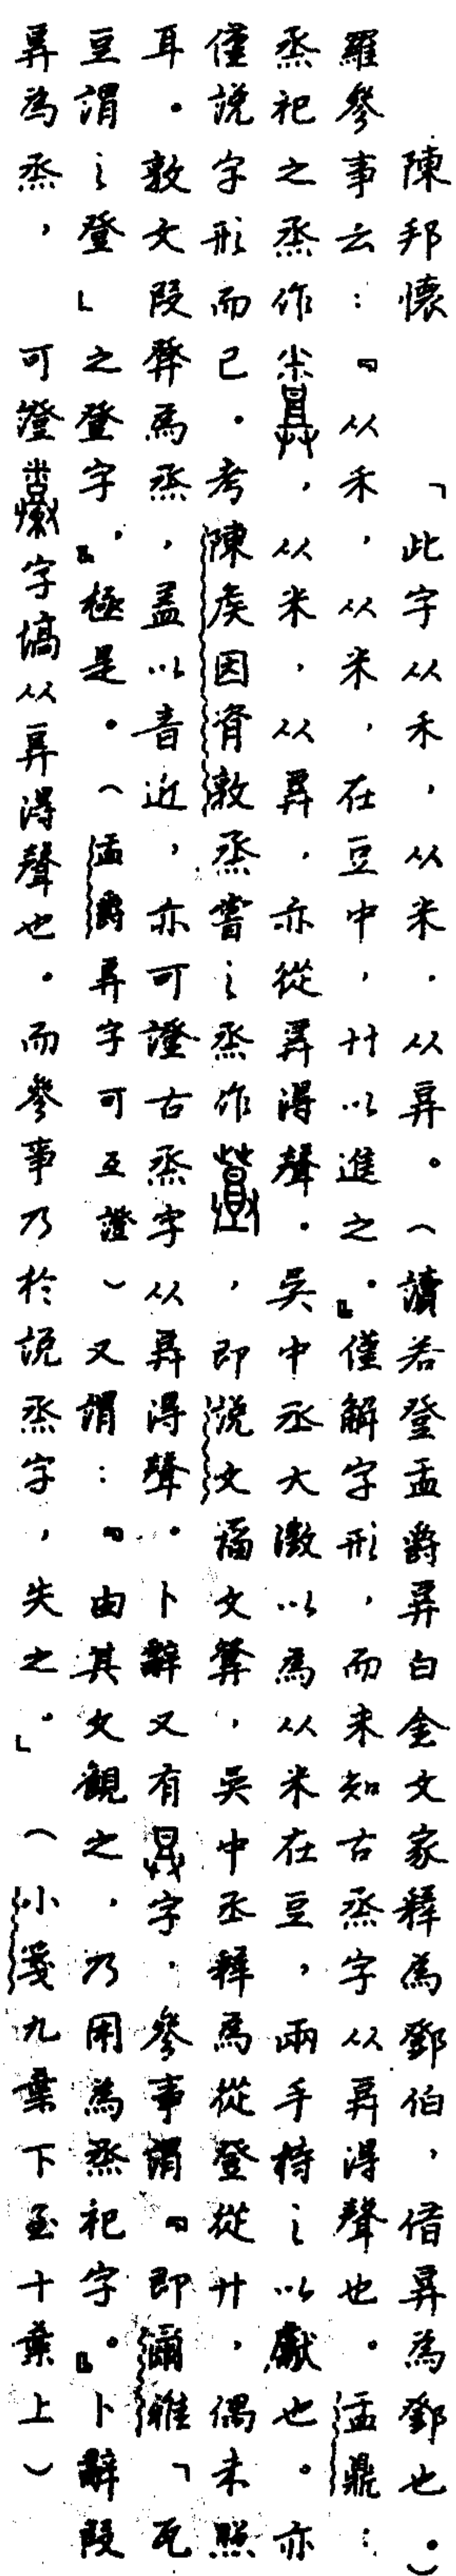 陳邦懷「此字从禾，从米．从𢍪。（讀若登盂爵𢍪白金文家釋為鄧伯，借𢍪為鄧也。）
羅參事云：『从禾，从米，在豆中，廾以進之。』僅解字形，而未知古烝字从𢍪得聲也。盂鼎：
烝祀之烝作，从米，从𢍪．亦從𢍪得聲。吳中丞大澂以為从米在豆，兩手持之以獻也。亦
僅説字形而已。考陳矦因𬯎敦烝嘗之烝作，即説文籀文，吳中丞釋為從登從廾，偶未照
耳。敦文叚為烝，蓋以音近，亦可證古烝字从𢍪得聲。卜辭又有字．參事謂『即爾雅「瓦
豆謂之登」之登字』，極是。（盂爵𢍪字可互證）又謂：『由其文觀之，乃用為烝祀字。』卜辭叚
𢍪為烝，可證字塙从𢍪得聲也。而參事乃於説烝字，失之。」（小箋九葉下至十葉上）